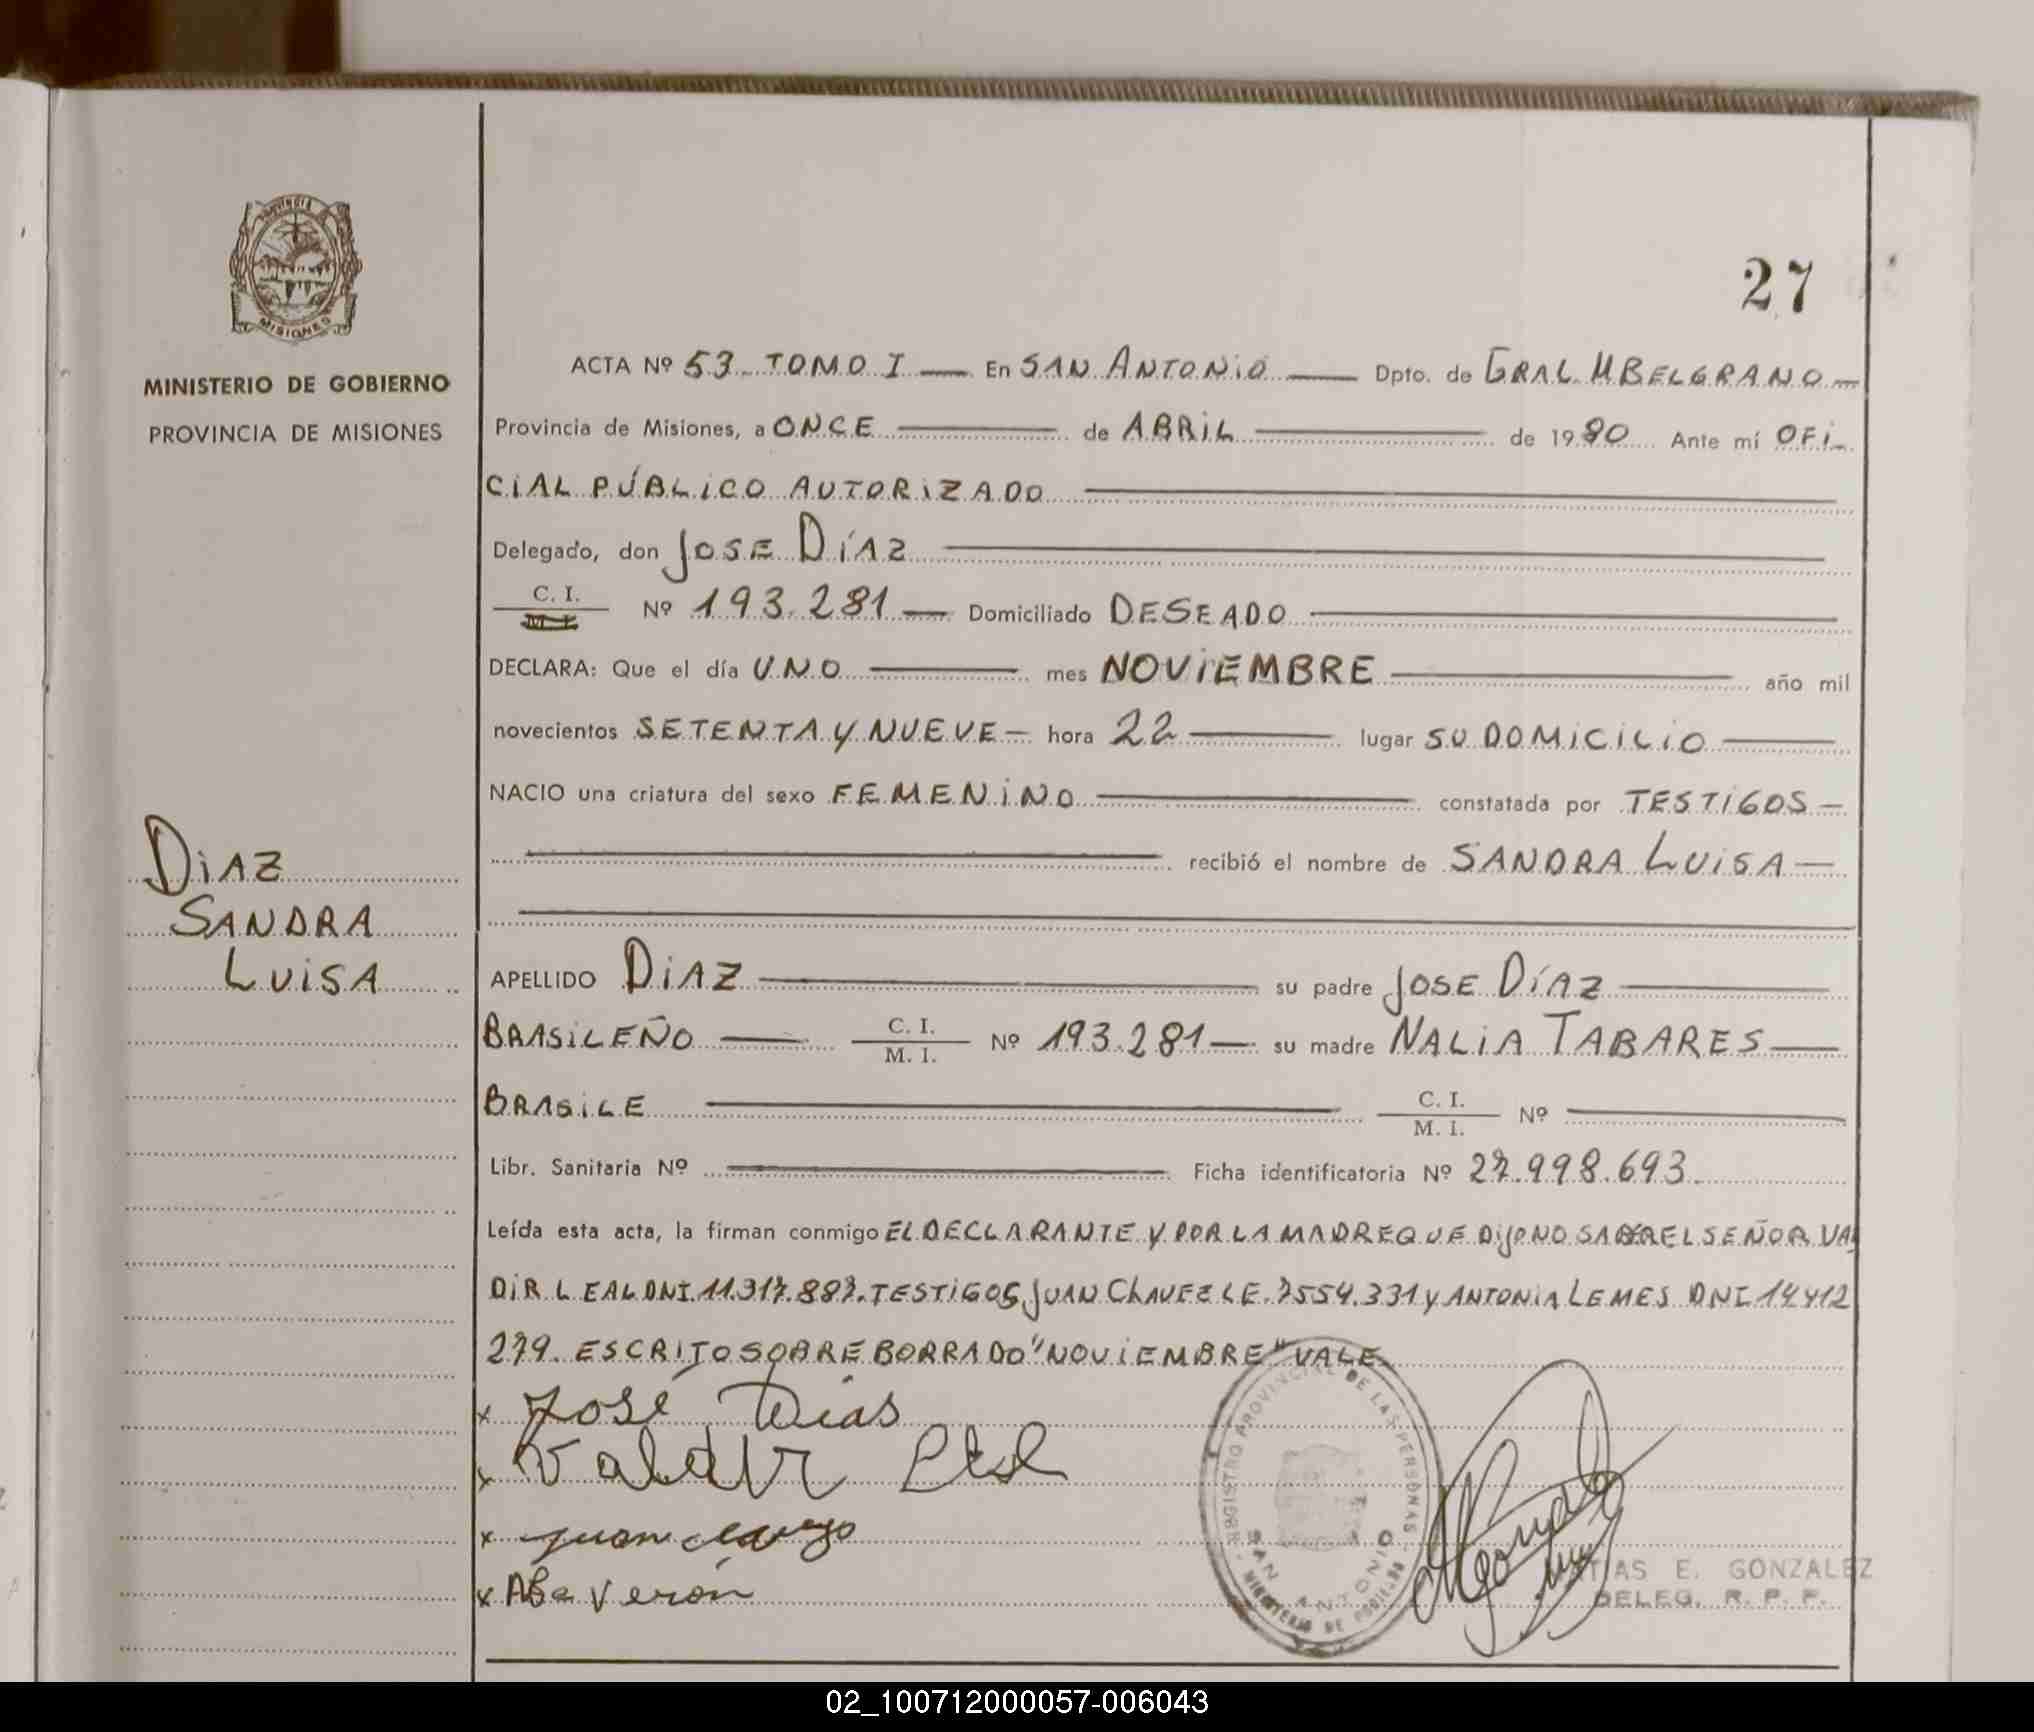 27
PROVINCIA
MISIONES
MINISTERIO DE GOBIERNO
PROVINCIA DE MISIONES
ACTA Nº 53 TOMO I — En SAN ANTONIO — Dpto. de GRAL MBELGRANO —
Provincia de Misiones, a ONCE — de ABRIL — de 1980 Ante mí OFI
CIAL PÚBLICO AUTORIZADO —
Delegado, don JOSE DÍAZ —
C. I.
M. I.
Nº 193.281 — Domiciliado DESEADO —
DECLARA: Que el día UNO — mes NOVIEMBRE — año mil
novecientos SETENTA Y NUEVE — hora 22 — lugar SU DOMICILIO —
NACIO una criatura del sexo FEMENINO — constatada por TESTIGOS —
— recibió el nombre de SANDRA LUISA —
DIAZ
SANDRA
LUISA
APELLIDO DIAZ — su padre JOSE DÍAZ —
BRASILEÑO — C. I. / M. I. Nº 193.281 — su madre NALIA TABARES —
BRASILE — C. I. / M. I. Nº —
Libr. Sanitaria Nº — Ficha identificatoria Nº 27.998.693
Leída esta acta, la firman conmigo EL DECLARANTE Y POR LA MADRE QUE DIJO NO SABER EL SEÑOR VAL
DIR LEAL DNI. 11.317.887. TESTIGOS JUAN CHAVEZ LE. 7554.331 y ANTONIA LEMES DNI 14412
279. ESCRITO SOBRE BORRADO "NOVIEMBRE" VALE
x José Dias
x Valdir
x juan
x Verón
REGISTRO PROVINCIAL DE LAS PERSONAS
SAN ANTONIO
MINISTERIO DE
E. GONZALEZ
DELEG. R. P. P.
02_100712000057-006043